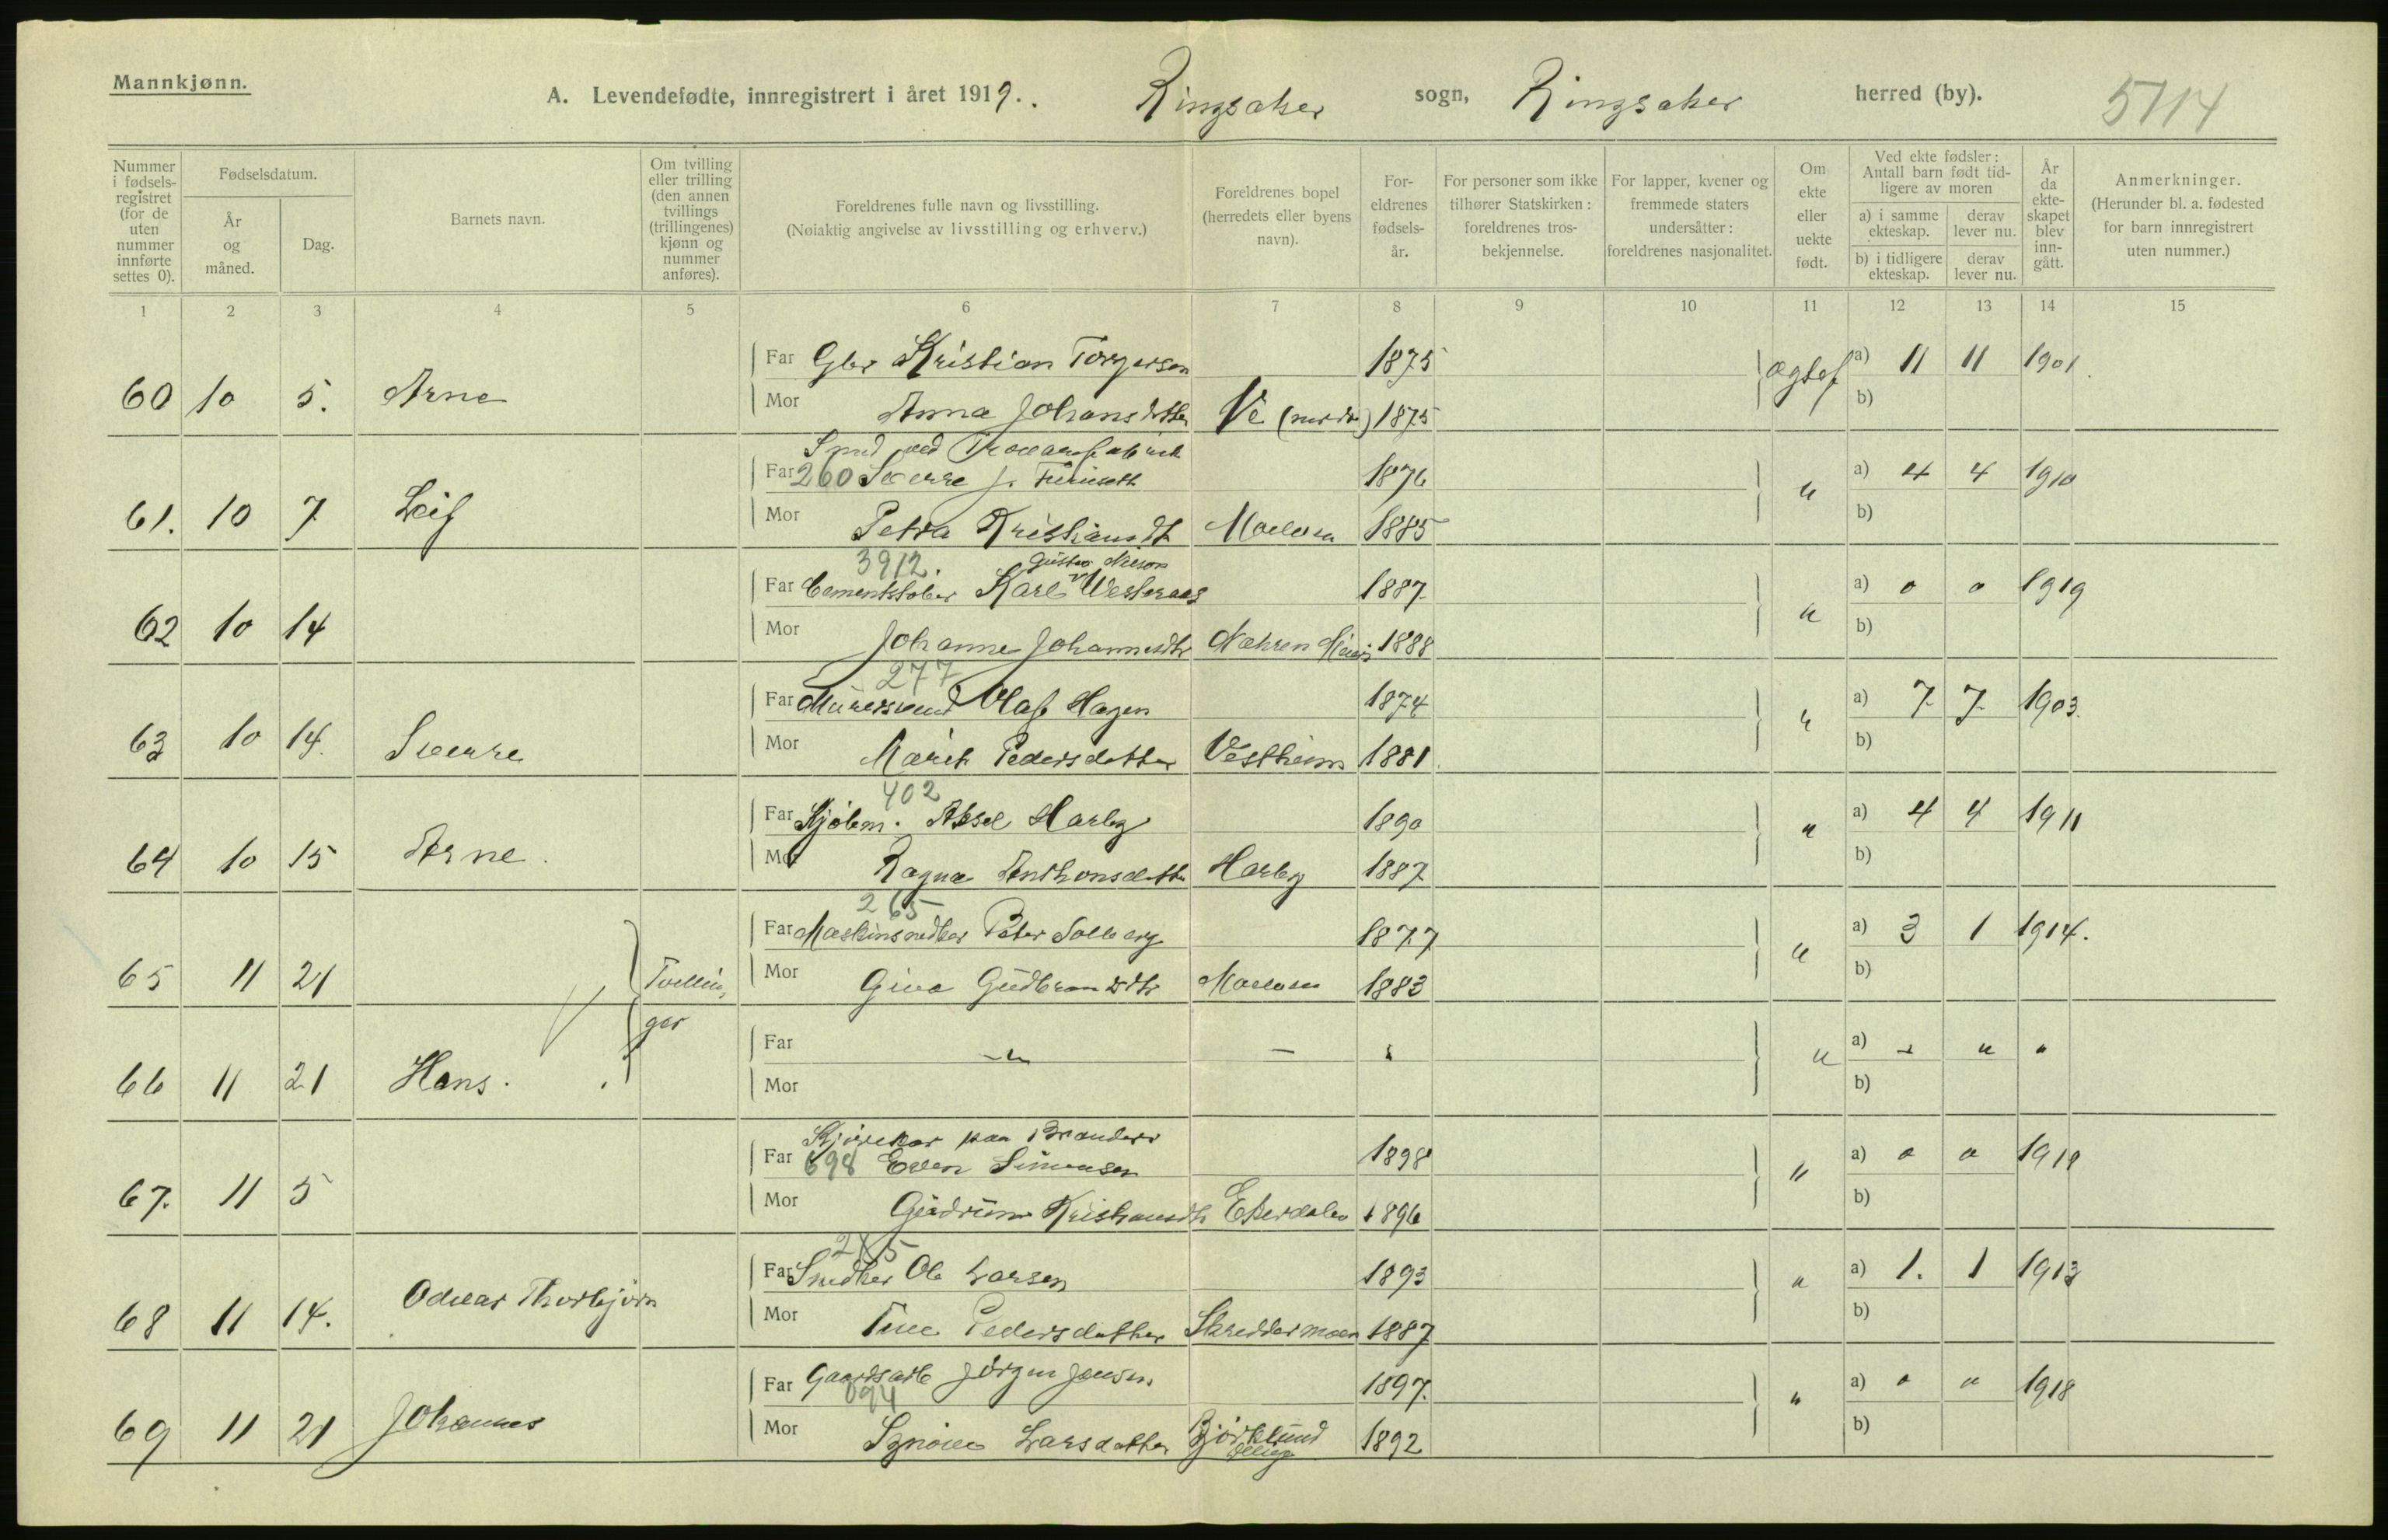 Mannkjønn.
A. Levendefødte, innregistrert i året 1919. Ringsaker sogn, Ringsaker herred (by). 5114
Nummer i fødsels-registret (for de uten nummer innførte settes 0).
Fødselsdatum.
År og måned.
Dag.
Barnets navn.
Om tvilling eller trilling (den annen tvillings (trillingenes) kjønn og nummer anføres).
Foreldrenes fulle navn og livsstilling.
(Nøiaktig angivelse av livsstilling og erhverv.)
Foreldrenes bopel (herredets eller byens navn).
For-eldrenes fødsels-år.
For personer som ikke tilhører Statskirken: foreldrenes tros-bekjennelse.
For lapper, kvener og fremmede staters undersåtter: foreldrenes nasjonalitet.
Om ekte eller uekte født.
Ved ekte fødsler: Antall barn født tid-ligere av moren
a) i samme ekteskap.
derav lever nu.
b) i tidligere ekteskap.
derav lever nu.
År da ekte-skapet blev inn-gått.
Anmerkninger.
(Herunder bl. a. fødested for barn innregistrert uten nummer.)
1 2 3 4 5 6 7 8 9 10 11 12 13 14 15
Far Gbr Kristian Torgersen 1875 a) 11 11 1901.
60 10 5. Arne
Mor Anna Johansdatter Ve 1875 b)
Smed ved
Far 260 Sverre J. Furuseth 1876 a) 4 4 1910
61. 10 7 Leif "
Mor Petra Kristiansdt Moelven 1885 b)
3912.
Far Cementstøber Karl Westeraas 1887 a) 0 0 1919
62 10 14 "
Mor Johanne Johannesdtr 1888 b)
277
Far Murersvend Olaf Hagen 1874 a) 7 7 1903.
63 10 14. Sverre "
Mor Marit Pedersdatter Vestheim 1881 b)
402
Far Kjøbm. Aksel Harby 1890 a) 4 4 1911
64 10 15 Arne. "
Mor Ragna Anthonsdatter Harby 1887 b)
265
Far Maskinsnedker Peter Solberg 1877 a) 3 1 1914.
65 11 21 Tvillin- "
Mor Gina Gudbrandsdtr Moelven 1883 b)
ger
Far - " - " " a) " " "
66 11 21 Hans.
Mor b)
Kjørekar paa
Far 698 Even Simensen 1898 a) 0 0 1919
67. 11 5 "
Mor Gudrun Kristiansdtr Ekerdalen 1896 b)
285
Far Snedker Ole Larsen 1893 a) 1. 1 1913
68 11 14. Odvar Thorbjørn "
Mor Tine Pedersdatter Skreddermoen 1887 b)
Far Gaardsarb Jørgen Jensen 1897. a) 0 0 1918
694
69 11 21 Johannes "
Mor Synøve Larsdatter Bjørklund 1892 b)